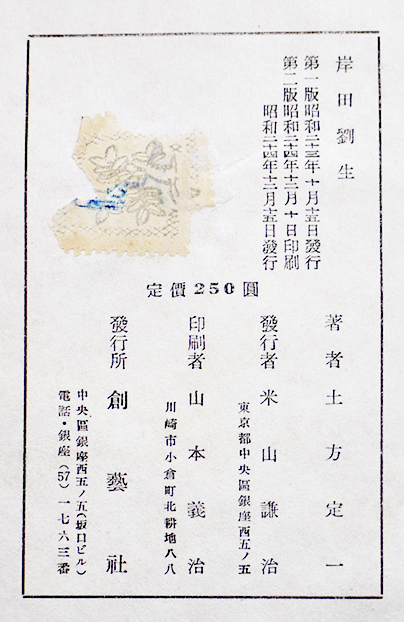 岸田劉生
第一版昭和二十三年十月十五日發行
第二版昭和二十四年十二月十日印刷
昭和二十四年十二月十五日發行
定價250圓
著者 土方定一
發行者 米山謙治
東京都中央區銀座西五ノ五
印刷者 山本義治
川崎市小倉町北耕地八八
發行所 創藝社
中央區銀座西五ノ五(坂口ビル)
電話・銀座(57)一七六三番